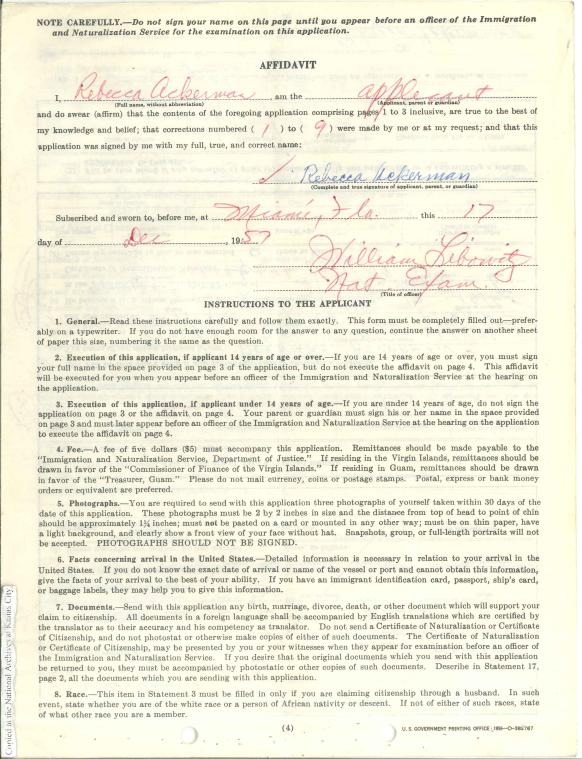 NOTE CAREFULLY.—Do not sign your name on this page until you appear before an officer of the Immigration
and Naturalization Service for the examination on this application.
AFFIDAVIT
I, Rebecca Ackerman, am the applicant
(Full name, without abbreviation) (Applicant, parent or guardian)
and do swear (affirm) that the contents of the foregoing application comprising pages 1 to 3 inclusive, are true to the best of
my knowledge and belief; that corrections numbered ( 1 ) to ( 9 ) were made by me or at my request; and that this
application was signed by me with my full, true, and correct name:
Rebecca Ackerman
(Complete and true signature of applicant, parent, or guardian)
Subscribed and sworn to, before me, at Miami, Fla. this 17
day of Dec, 1957
William Libowitz
Nat. Exam.
(Title of officer)
INSTRUCTIONS TO THE APPLICANT
1. General.—Read these instructions carefully and follow them exactly. This form must be completely filled out—prefer-
ably on a typewriter. If you do not have enough room for the answer to any question, continue the answer on another sheet
of paper this size, numbering it the same as the question.
2. Execution of this application, if applicant 14 years of age or over.—If you are 14 years of age or over, you must sign
your full name in the space provided on page 3 of the application, but do not execute the affidavit on page 4. This affidavit
will be executed for you when you appear before an officer of the Immigration and Naturalization Service at the hearing on
the application.
3. Execution of this application, if applicant under 14 years of age.—If you are under 14 years of age, do not sign the
application on page 3 or the affidavit on page 4. Your parent or guardian must sign his or her name in the space provided
on page 3 and must later appear before an officer of the Immigration and Naturalization Service at the hearing on the application
to execute the affidavit on page 4.
4. Fee.—A fee of five dollars ($5) must accompany this application. Remittances should be made payable to the
"Immigration and Naturalization Service, Department of Justice." If residing in the Virgin Islands, remittances should be
drawn in favor of the "Commissioner of Finance of the Virgin Islands." If residing in Guam, remittances should be drawn
in favor of the "Treasurer, Guam." Please do not mail currency, coins or postage stamps. Postal, express or bank money
orders or equivalent are preferred.
5. Photographs.—You are required to send with this application three photographs of yourself taken within 30 days of the
date of this application. These photographs must be 2 by 2 inches in size and the distance from top of head to point of chin
should be approximately 1¼ inches; must not be pasted on a card or mounted in any other way; must be on thin paper, have
a light background, and clearly show a front view of your face without hat. Snapshots, group, or full-length portraits will not
be accepted. PHOTOGRAPHS SHOULD NOT BE SIGNED.
6. Facts concerning arrival in the United States.—Detailed information is necessary in relation to your arrival in the
United States. If you do not know the exact date of arrival or name of the vessel or port and cannot obtain this information,
give the facts of your arrival to the best of your ability. If you have an immigrant identification card, passport, ship's card,
or baggage labels, they may help you to give this information.
7. Documents.—Send with this application any birth, marriage, divorce, death, or other document which will support your
claim to citizenship. All documents in a foreign language shall be accompanied by English translations which are certified by
the translator as to their accuracy and his competency as translator. Do not send a Certificate of Naturalization or Certificate
of Citizenship, and do not photostat or otherwise make copies of either of such documents. The Certificate of Naturalization
or Certificate of Citizenship, may be presented by you or your witnesses when they appear for examination before an officer of
the Immigration and Naturalization Service. If you desire that the original documents which you send with this application
be returned to you, they must be accompanied by photostatic or other copies of such documents. Describe in Statement 17,
page 2, all the documents which you are sending with this application.
8. Race.—This item in Statement 3 must be filled in only if you are claiming citizenship through a husband. In such
event, state whether you are of the white race or a person of African nativity or descent. If not of either of such races, state
of what other race you are a member.
(4)
U. S. GOVERNMENT PRINTING OFFICE
Copied at the National Archives at Kansas City